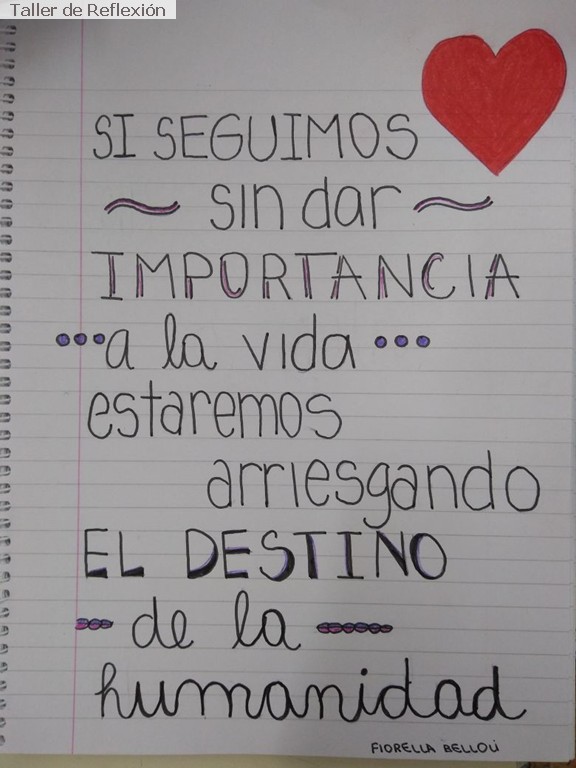 Taller de Reflexión
SI SEGUIMOS
sin dar
IMPORTANCIA
a la vida
estaremos
arriesgando
EL DESTINO
de la
humanidad
FIORELLA BELLOLI